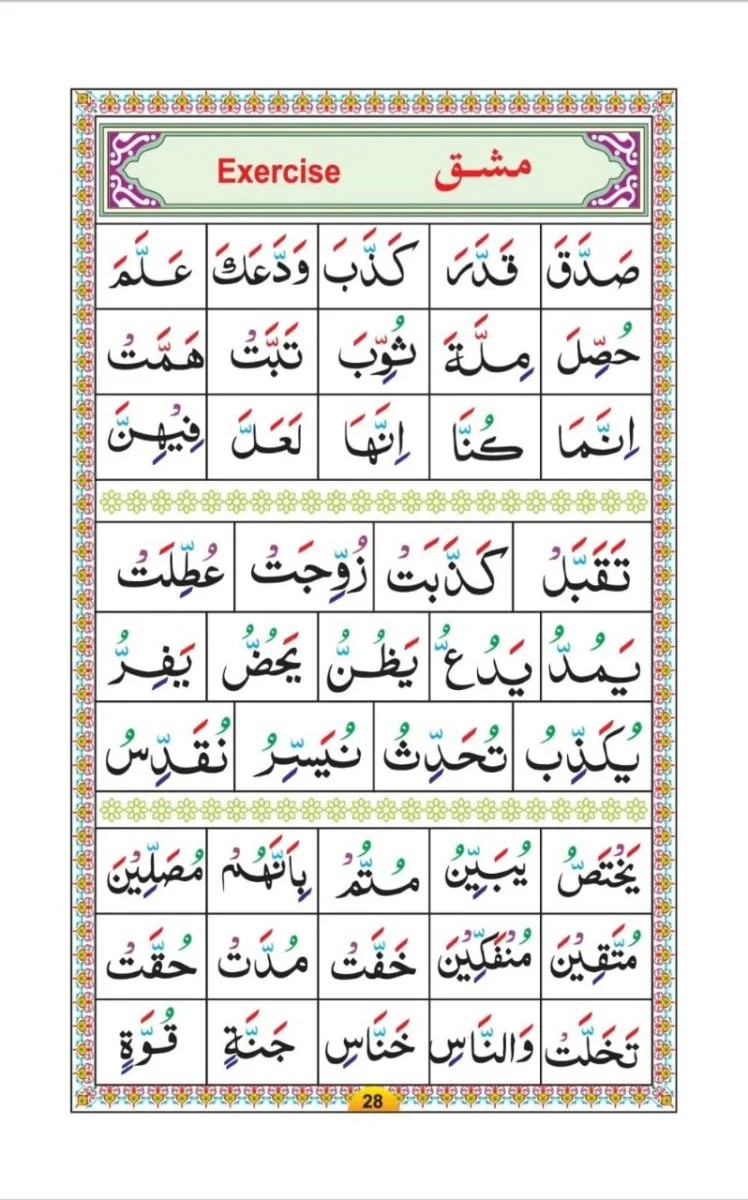 مشق Exercise
صَدَّقَ قَدَّرَ كَذَّبَ وَدَّعَكَ عَلَّمَ
حُصِّلَ مِلَّةَ ثُوِّبَ تَبَّتْ هَمَّتْ
اِنَّمَا كُنَّا اِنَّهَا لَعَلَّ فِيْهِنَّ
تَقَبَّلْ كَذَّبَتْ زُوِّجَتْ عُطِّلَتْ
يَمُدُّ يَدُعُّ يَظُنُّ يَحُضُّ يَفِرُّ
يُكَذِّبُ تُحَدِّثُ نُيَسِّرُ نُقَدِّسُ
يَخْتَصُّ يُبَيِّنُ مُتُّمْ بِاَنَّهُمْ مُصَلِّيْنَ
مُتَّقِيْنَ مُنْفَكِّيْنَ خَفَّتْ مُدَّتْ حُقَّتْ
تَخَلَّتْ وَالنَّاسِ خَنَّاسِ جَنَّةٍ قُوَّةٍ
28